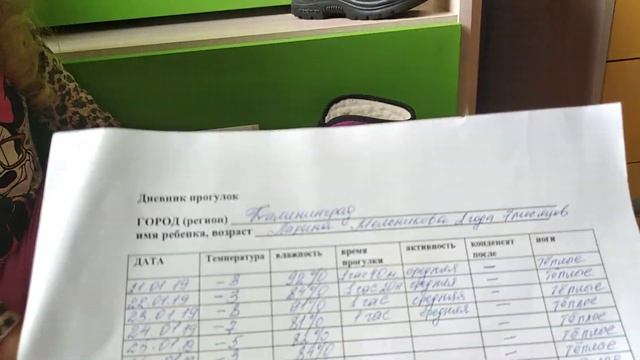 Дневник прогулок
ГОРОД (регион) Калининград
имя ребенка, возраст Марина Мельникова 2 года 7 месяцев
ДАТА Температура влажность время прогулки активность конденсат после ноги
21.01.19 -8 1 час 40 м средняя - тёплое
22.01.19 -3 84% 1 час средняя - тёплое
23.01.19 -8 91% 1 час средняя - тёплое
24.01.19 81% 1 час средняя - тёплое
25.01.19 -5 тёплое
-3 тёплое